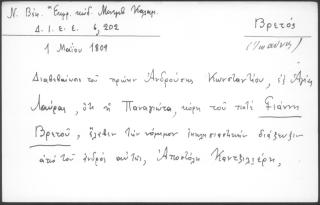 Ν. Βέη. "Εκφρ. κώδ. Μητροπ. Καλαμ.
Δ. Ι. Ε. Ε. 6, 202
Βρετός
(Ιωάννης)
1 Μαΐου 1809
Διαβεβαίωσις τοῦ πρώην Ἀνδρούσης Κωνσταντίου, ἐξ Ἁγίας
Λαύρας, ὅτι ἡ Παναγιώτα, κόρη τοῦ ποτέ Γιάννη
Βρετοῦ, ἔλαβεν τὴν νόμιμον ἐκκλησιαστικὴν διάζευξιν
ἀπό τοῦ ἀνδρός αὐτῆς, Ἀποστόλη Καντζιλιέρη.